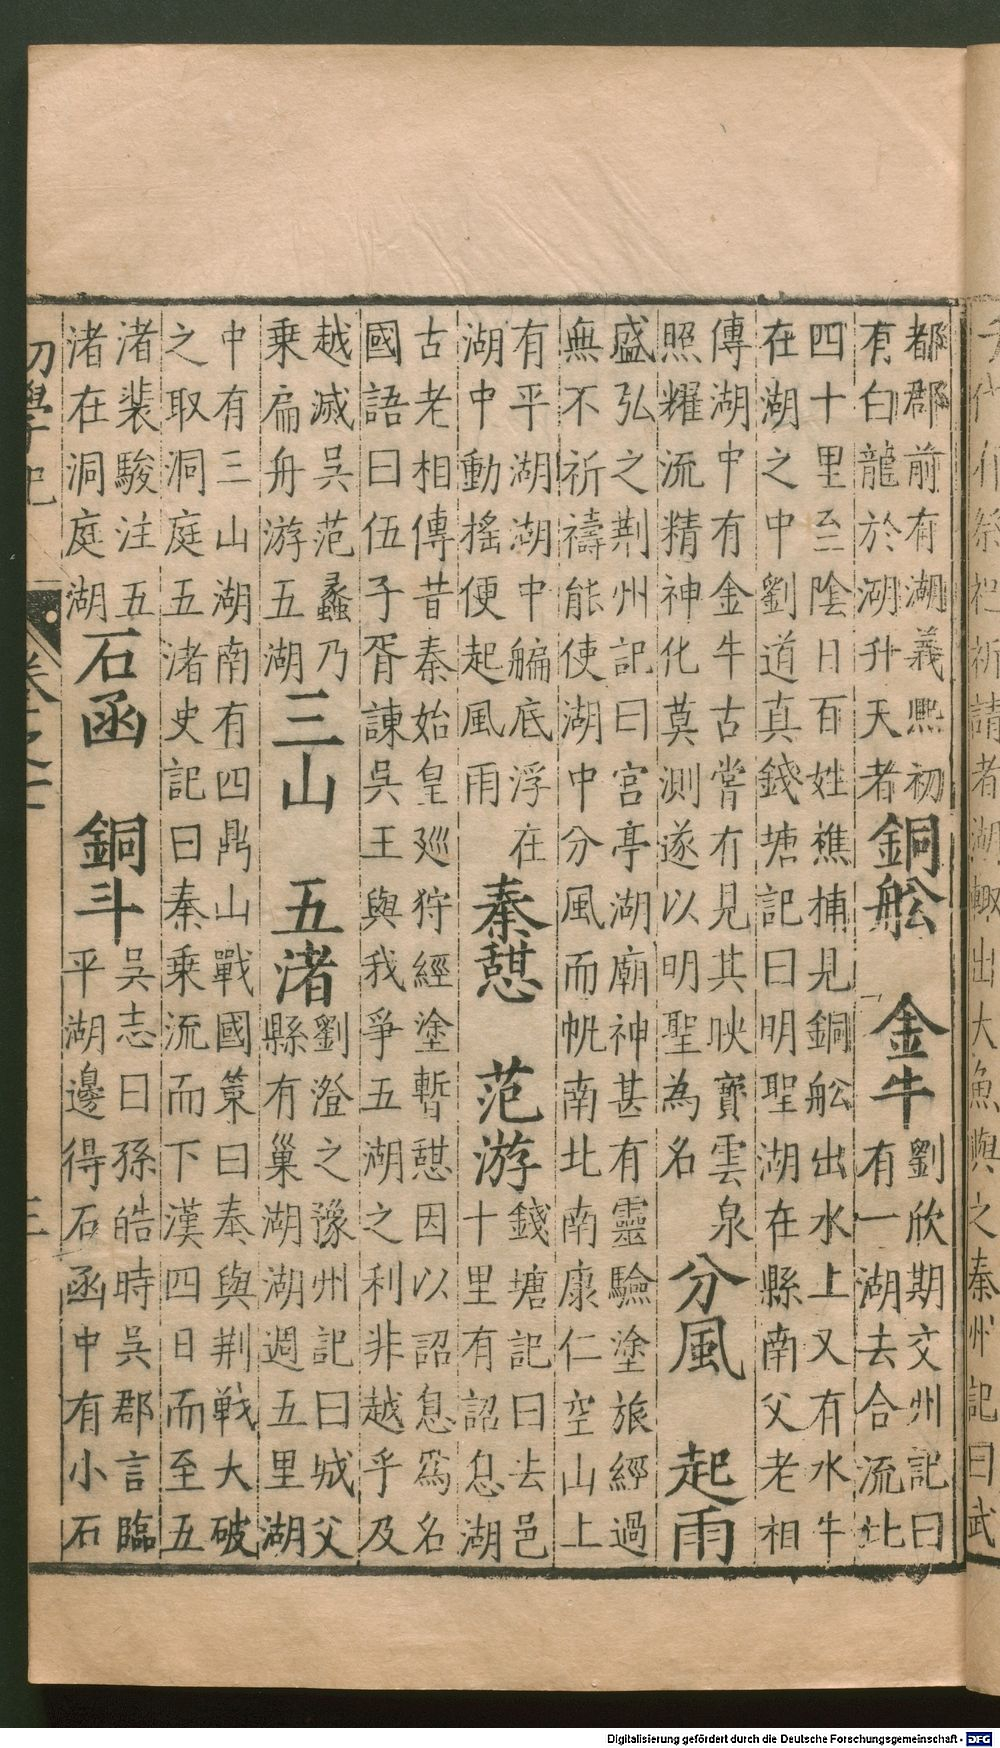 作祭祀祈請者湖輙出大魚輿之秦州記曰武
都郡前有湖義熙初
有白龍於湖升天者
銅舩 金牛
劉欣期交州記曰
有一湖去合流北
四十里至陰日百姓樵捕見銅舩出水上又有水牛
在湖之中劉道真錢塘記曰明聖湖在縣南父老相
傳湖中有金牛古嘗有見其映寶雲泉
照耀流精神化莫測遂以明聖為名
分風 起雨
盛弘之荆州記曰宮亭湖廟神甚有靈驗塗旅經過
無不祈禱能使湖中分風而帆南北南康仁空山上
有平湖湖中艑底浮在
湖中動搖便起風雨
秦憇 范游
錢塘記曰去邑
十里有詔息湖
古老相傳昔秦始皇廵狩經塗暫憇因以詔息爲名
國語曰伍子胥諫吳王與我爭五湖之利非越乎及
越滅吳范蠡乃
乘扁舟游五湖
三山 五渚
劉澄之豫州記曰城父
縣有巢湖湖週五里湖
中有三山湖南有四鼎山戰國策曰秦與荆戰大破
之取洞庭五渚史記曰秦乘流而下漢四日而至五
渚裴駿注五
渚在洞庭湖
石函 銅斗
吳志曰孫皓時吳郡言臨
平湖邊得石函中有小石
初學記 卷之七 三
Digitalisierung gefördert durch die Deutsche Forschungsgemeinschaft - DFG